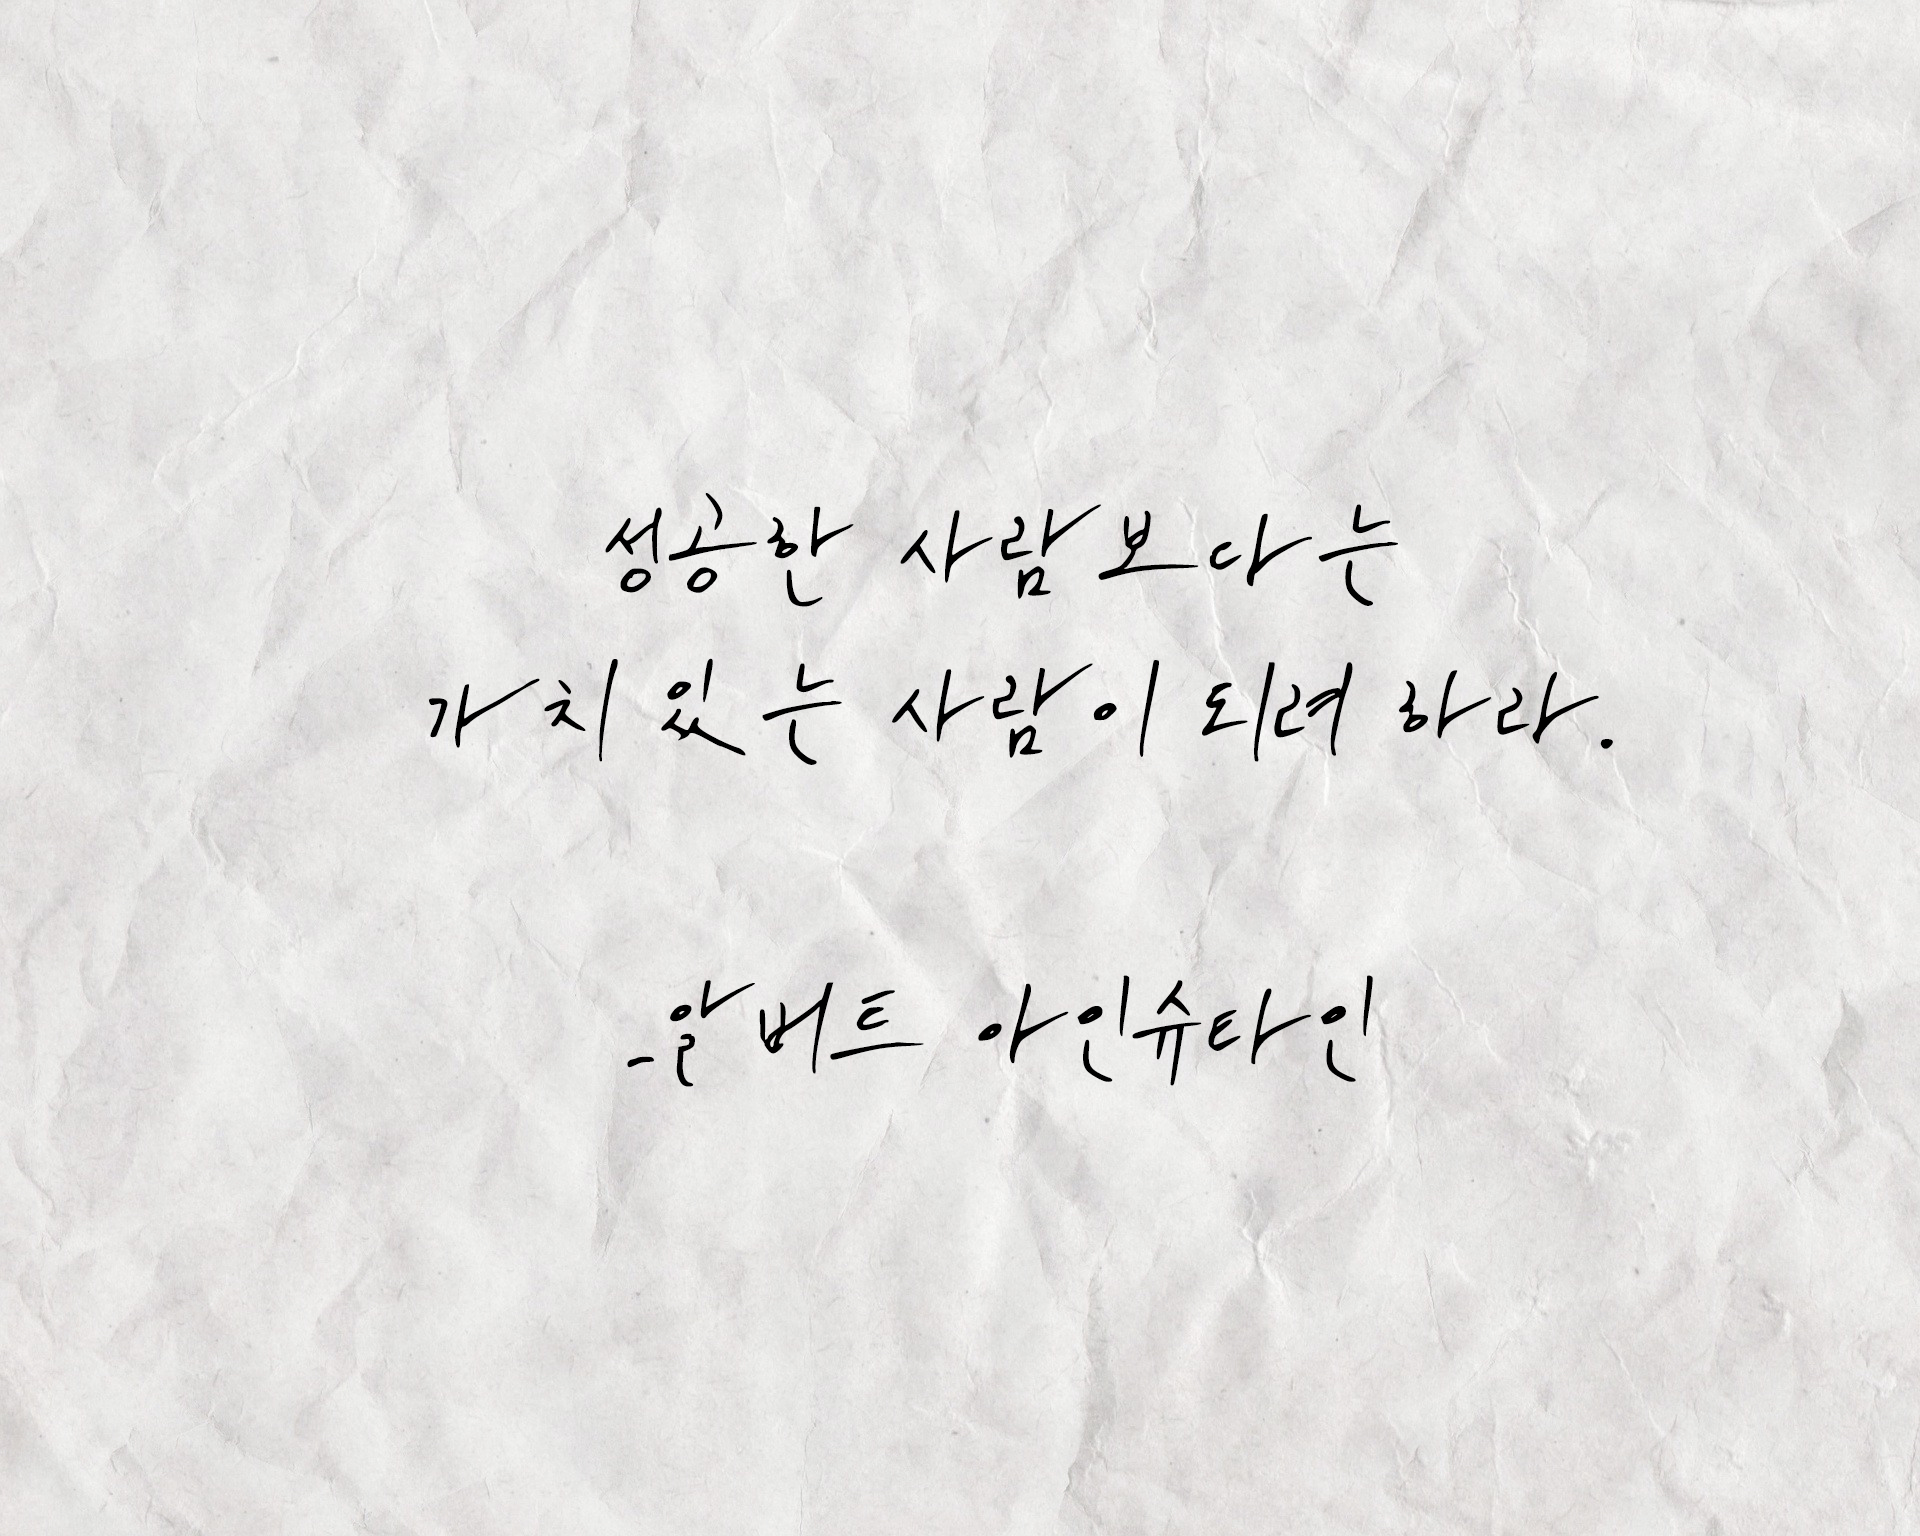 성공한 사람보다는
가치 있는 사람이 되려 하라.
_알버트 아인슈타인